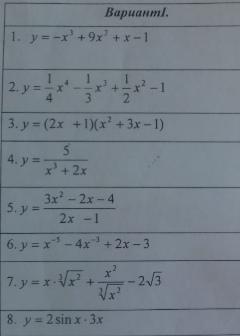 ВариантI.
1. y = −x³ + 9x² + x − 1
2. y = \frac{1}{4}x⁴ − \frac{1}{3}x³ + \frac{1}{2}x² − 1
3. y = (2x + 1)(x² + 3x − 1)
4. y = \frac{5}{x³ + 2x}
5. y = \frac{3x² − 2x − 4}{2x − 1}
6. y = x⁻⁵ − 4x⁻³ + 2x − 3
7. y = x · \sqrt[3]{x²} + \frac{x²}{\sqrt[3]{x²}} − 2√3
8. y = 2 sin x · 3x